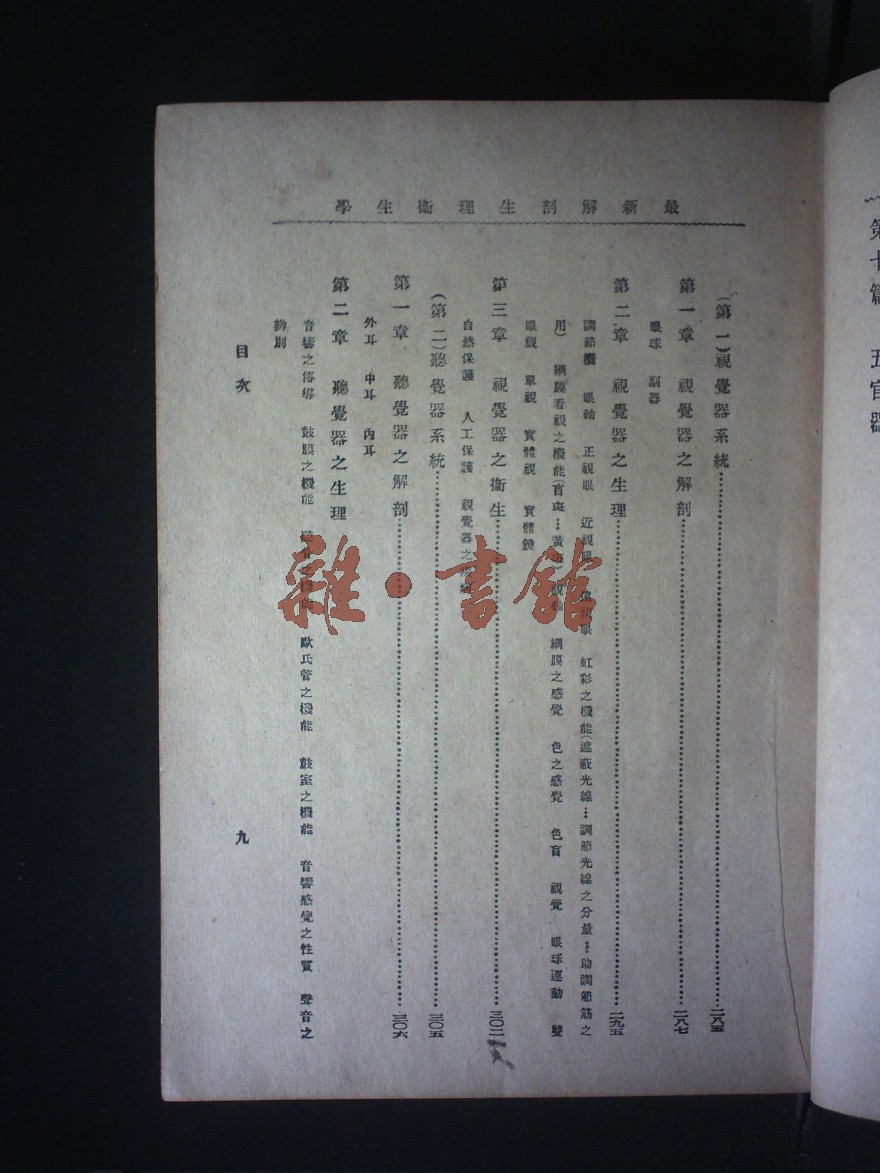 最新解剖生理衞生學
(第一)視覺器系統……二八五
第一章 視覺器之解剖……二八七
眼球 副器
第二章 視覺器之生理……二九五
調節機 眼軸 正視眼 近視眼 遠視眼 虹彩之機能(遮蔽光線…調節光線之分量…助調節筋之
用) 網膜看視之機能(盲斑…黃 網膜之感覺 色之感覺 色盲 視覺 眼球運動 雙
眼視 單視 實體視 實體鏡
第三章 視覺器之衞生……三〇二
自然保護 人工保護 視覺器之
(第二)聽覺器系統……三〇五
第一章 聽覺器之解剖……三〇六
外耳 中耳 內耳
第二章 聽覺器之生理
音響之傳導 鼓膜之機能 歐氏管之機能 鼓室之機能 音響感覺之性質 聲音之
辨別
目次
九
雜·書館
第十篇 五官器